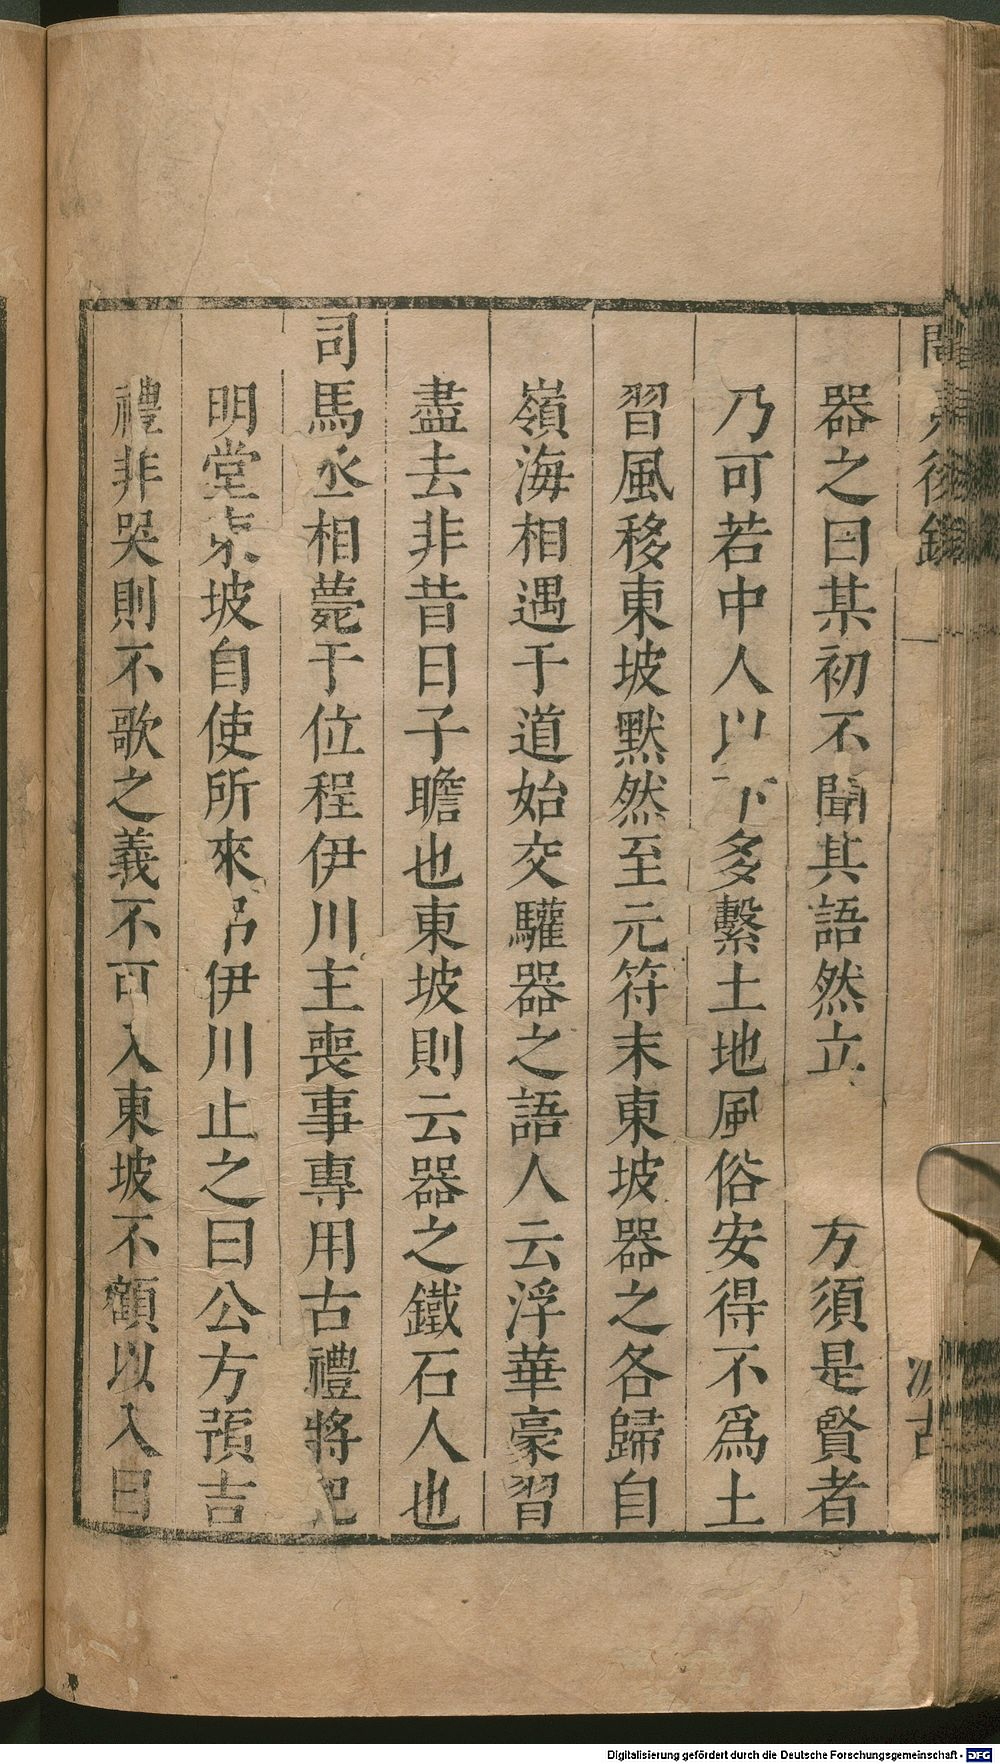 聞見後錄
汲古
器之曰某初不聞其語然立 方須是賢者
乃可若中人以下多繫土地風俗安得不爲土
習風移東坡默然至元符末東坡器之各歸自
嶺海相遇于道始交驩器之語人云浮華豪習
盡去非昔日子瞻也東坡則云器之鐵石人也
司馬丞相薨于位程伊川主喪事專用古禮將祀
明堂東坡自使所來弔伊川止之曰公方預吉
禮非哭則不歌之義不可入東坡不顧以入曰
Digitalisierung gefördert durch die Deutsche Forschungsgemeinschaft - DFG